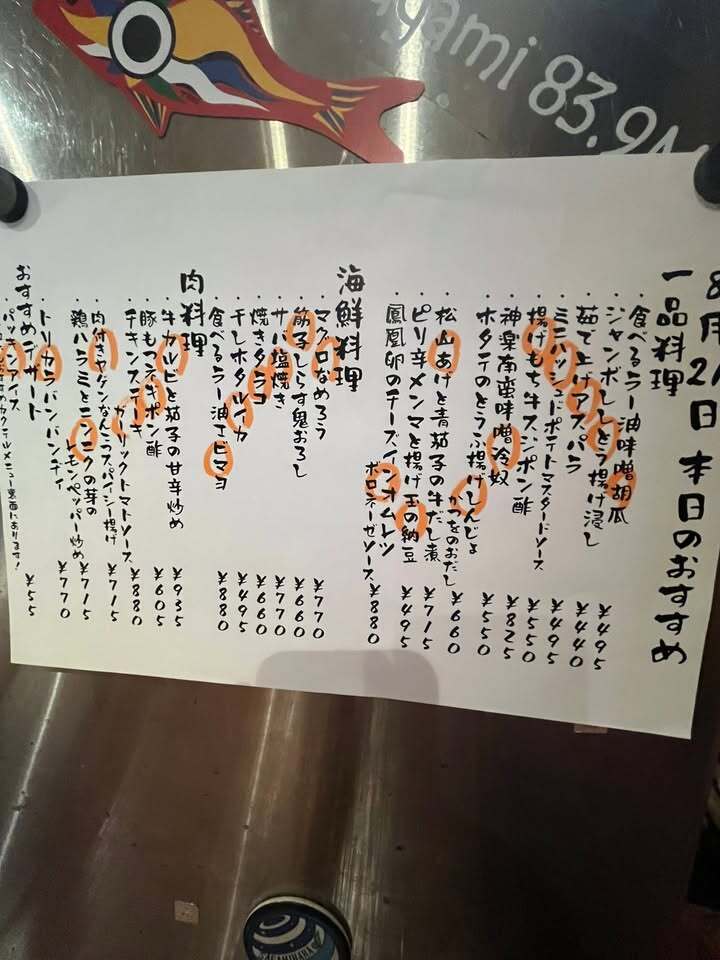 gami 83.9M
8月21日 本日のおすすめ
一品料理
・食べるラー油味噌胡瓜 ¥495
・ジャンボししとう揚げ浸し ¥440
・茹で上げアスパラ ¥495
・ミニハッシュドポテトマスタードソース ¥550
・揚げもち牛スジポン酢 ¥825
・神楽南蛮味噌冷奴 ¥550
・ホタテのとうふ揚げしんじょ かつをのおだし ¥660
・松山あげと青茄子の牛だし煮 ¥715
・ピリ辛メンマと揚げ玉の納豆 ¥495
・鳳凰卵のチーズインオムレツ ボロネーゼソース ¥880
海鮮料理
・マグロなめろう ¥770
・筋子しらす鬼おろし ¥660
・サバ塩焼き ¥770
・焼きタラコ ¥660
・干しホタルイカ ¥495
・食べるラー油エビマヨ ¥880
肉料理
・牛カルビと茄子の甘辛炒め ¥935
・豚もつネギポン酢 ¥605
・チキンステーキ ガーリックトマトソース ¥880
・肉付きヤゲンなんこつスパイシー揚げ ¥715
・鶏ハラミとニンニクの芽の レモンペッパー炒め ¥715
・トリカラバンバンディ ¥770
おすすめデザート
・パッキンアイス ¥55
カクテルメニュー裏面にあります!